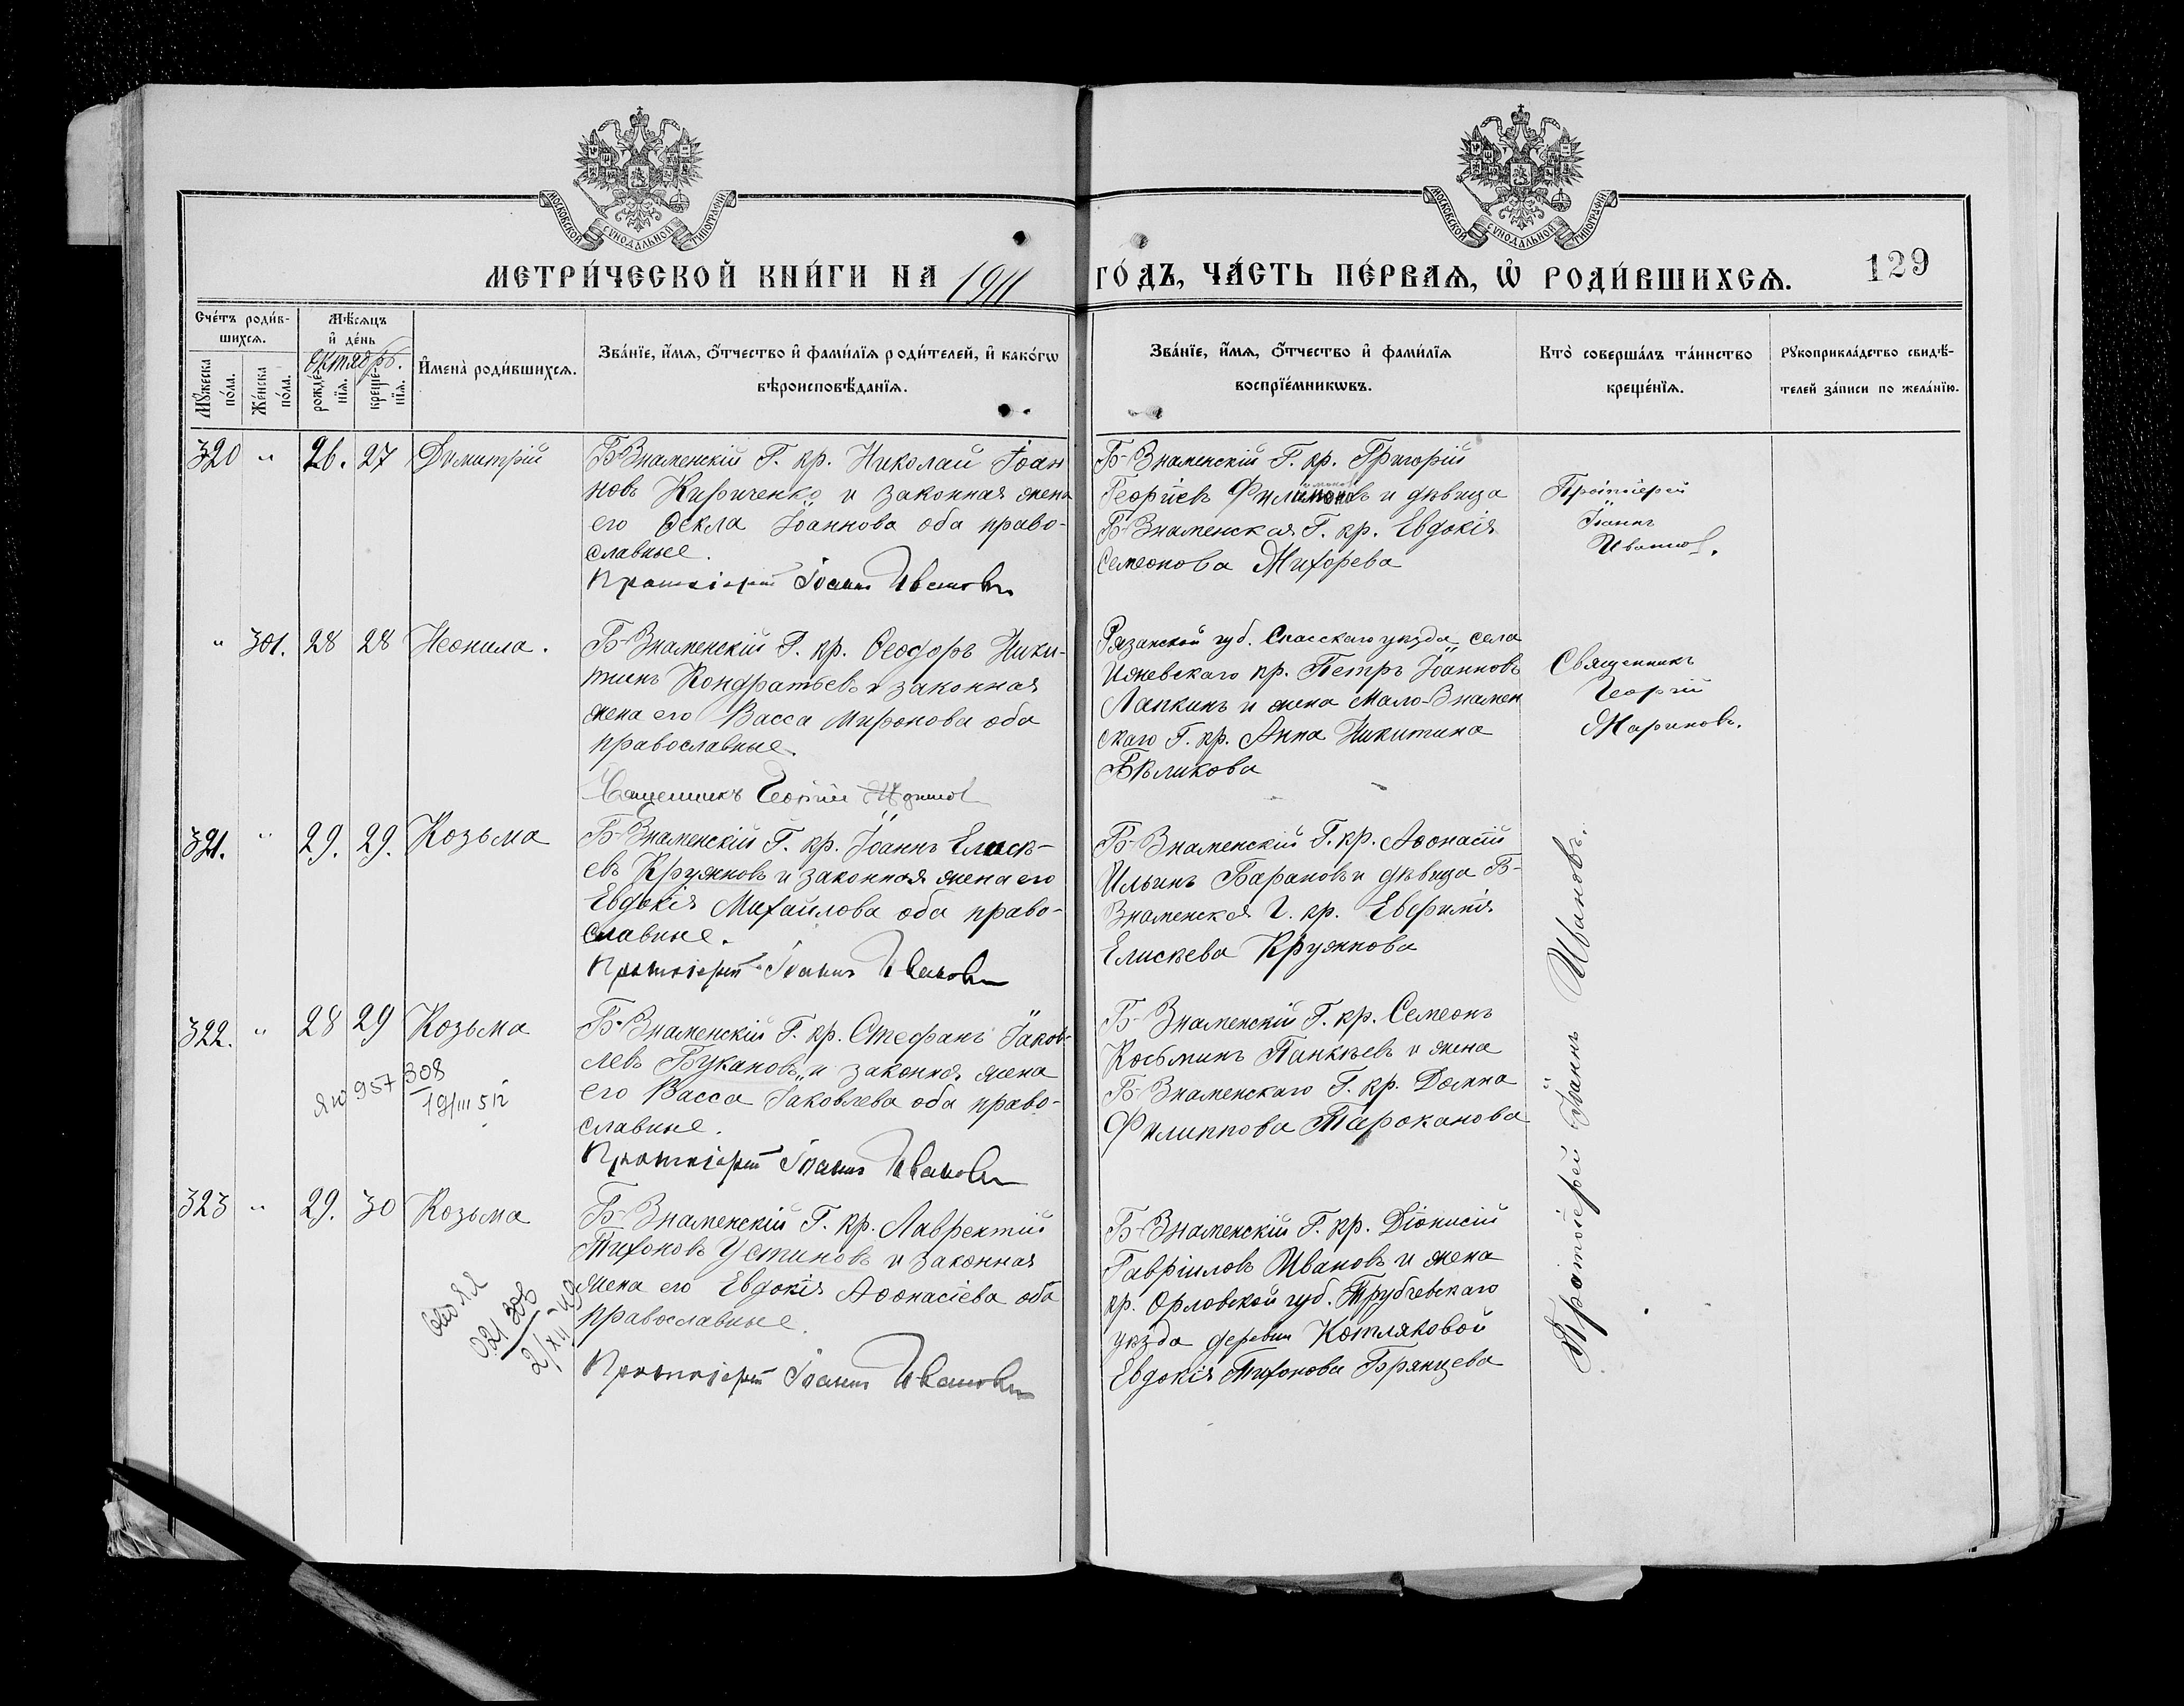 МОСКОВСКОЙ СѴНОДАЛЬНОЙ ТИПОГРАФІИ
МОСКОВСКОЙ СѴНОДАЛЬНОЙ ТИПОГРАФІИ
МЕТРИ́ЧЕСКОЙ КНИ́ГИ НА 1911
ГО́ДЪ, ЧА́СТЬ ПЕ́РВАѦ, Ѡ҆ РОДИ́ВШИХСѦ.
129
Сче́тъ роди́в-
шихсѧ.
Мꙋ́жеска
по́ла.
Же́нска
по́ла.
Мѣ́сѧцъ
и҆ де́нь
Октябрь.
рожде́-
нїѧ.
креще́-
нїѧ.
И҆мена̀ роди́вшихсѧ.
Зва́нїе, и҆́мѧ, ѻ҆́тчество и҆ фами́лїѧ роди́телей, и҆ како́гѡ
вѣроисповѣ́данїѧ.
Зва́нїе, и҆́мѧ, ѻ҆́тчество и҆ фами́лїѧ
воспрїе́мникѡвъ.
Кто̀ соверша́лъ та́инство
креще́нїѧ.
Рꙋкоприкла́дство свидѣ́-
телей за́писи по жела́нїю.
320 " 26. 27 Димитрій
Б-Знаменскій Г. кр. Николай Іоан
новъ Кириченко и законная жена
его Ѳекла Іоаннова оба право-
славные.
Протоіерей Іоаннъ Ивановъ
Б-Знаменскій Г. кр. Григорій
Георгіевъ Филимоновъ и дѣвица
Б-Знаменская Г. кр. Евдокія
Семеонова Жихорева
Протоіерей
Іоаннъ
Ивановъ.
" 301. 28 28 Неонила.
Б-Знаменскій Г. кр. Ѳеодоръ Ники-
тинъ Кондратьевъ и законная
жена его Васса Миронова оба
православные.
Священникъ Георгій Жариновъ
Рязанской губ. Спасскаго уѣзда села
Ижевскаго кр. Петръ Іоанновъ
Лапкинъ и жена Мало-Знамен
скаго Г. кр. Анна Никитина
Бѣликова
Священникъ
Георгій
Жариновъ.
321. " 29. 29. Козьма
Б-Знаменскій Г. кр. Іоаннъ Елисѣ-
евъ Кружновъ и законная жена его
Евдокія Михаилова оба право-
славные.
Протоіерей Іоаннъ Ивановъ
Б-Знаменскій Г. кр. Аѳонасій
Ильинъ Барановъ и дѣвица Б-
Знаменская Г. кр. Евфимія
Елисѣева Кружнова
322. " 28 29 Козьма
957 308
19/III 51г
Б-Знаменскій Г. кр. Стефанъ Іаков-
левъ Букановъ и законная жена
его Васса Іаковлева оба право-
славные.
Протоіерей Іоаннъ Ивановъ
Б-Знаменскій Г. кр. Семеонъ
Косьминъ Панкѣевъ и жена
Б-Знаменскаго Г. кр. Домна
Филиппова Тароканова
323 " 29. 30 Козьма
021 306
2/XII-49
Б-Знаменскій Г. кр. Лаврентій
Тихоновъ Устиновъ и законная
жена его Евдокія Аѳонасіева оба
православные.
Протоіерей Іоаннъ Ивановъ
Б-Знаменскій Г. кр. Діонисій
Гавріиловъ Ивановъ и жена
кр. Орловской губ. Трубчевскаго
уѣзда деревни Котляковой
Евдокія Тихонова Брянцева
Протоіерей Іоаннъ Ивановъ.